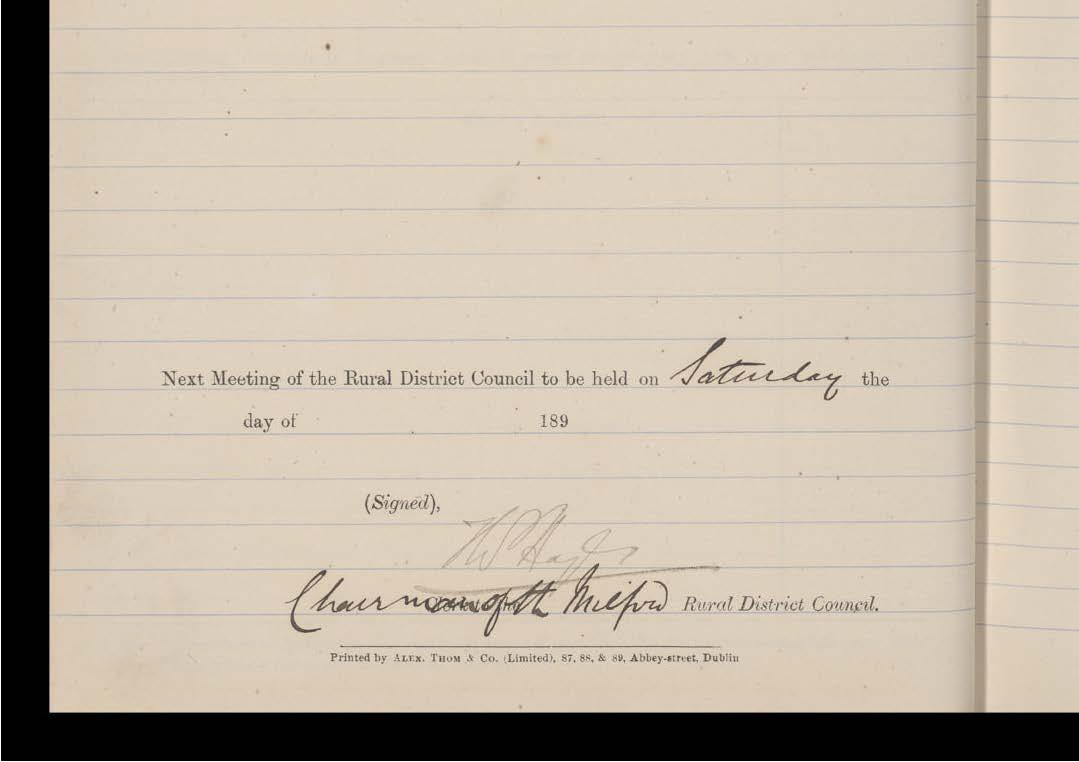 Next Meeting of the Rural District Council to be held on Saturday the
day of 189
(Signed),
Chairman of the Milford Rural District Council.
Printed by ALEX. THOM & CO. (Limited), 87, 88, & 89, Abbey-street, Dublin